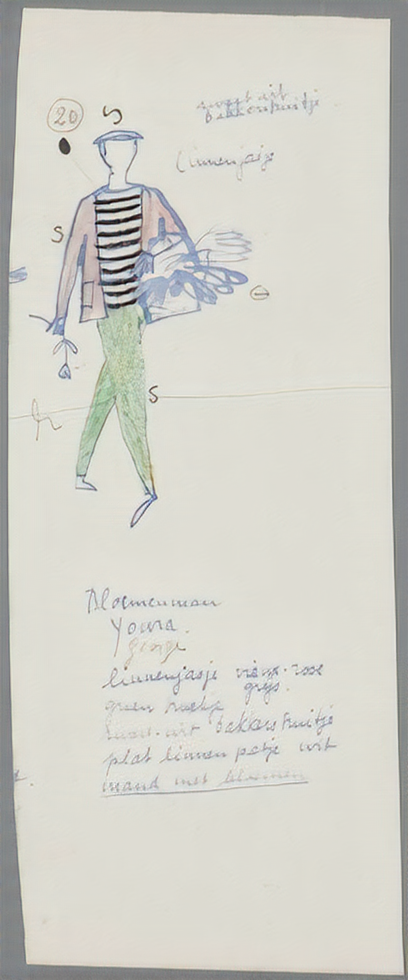 20
S
zwart wit
bakkersruitje
linnenjasje
S
S
Bloemenman
Youra.
george
linnenjasje vieux-rose
grijs.
groen broekje
zwart-wit bakkersruitje
plat linnen petje wit
mand met bloemen